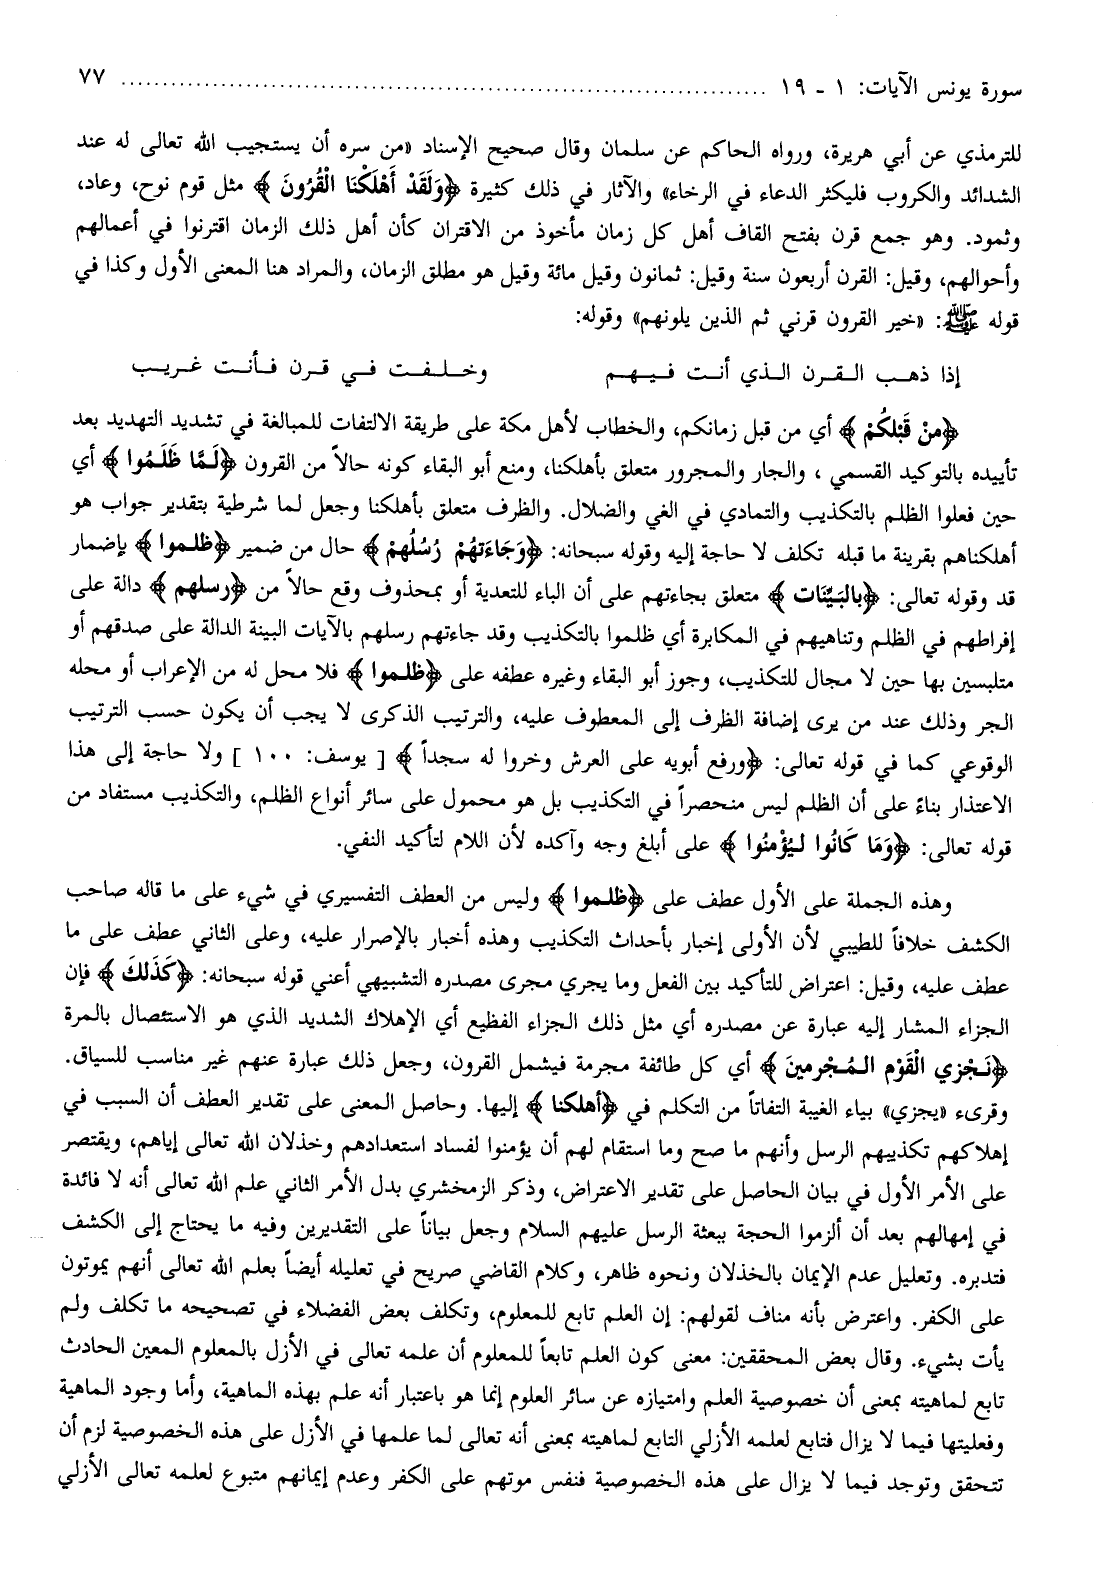 سورة يونس الآيات: ١ - ١٩ ........................................ ٧٧
للترمذي عن أبي هريرة، ورواه الحاكم عن سلمان وقال صحيح الإسناد «من سره أن يستجيب الله تعالى له عند
الشدائد والكروب فليكثر الدعاء في الرخاء» والآثار في ذلك كثيرة ﴿وَلَقَدْ أَهْلَكْنَا الْقُرُونَ﴾ مثل قوم نوح، وعاد،
وثمود. وهو جمع قرن بفتح القاف أهل كل زمان مأخوذ من الاقتران كأن أهل ذلك الزمان اقترنوا في أعمالهم
وأحوالهم، وقيل: القرن أربعون سنة وقيل: ثمانون وقيل مائة وقيل هو مطلق الزمان، والمراد هنا المعنى الأول وكذا في
قوله ﷺ: «خير القرون قرني ثم الذين يلونهم» وقوله:
إذا ذهب القرن الذي أنت فيهم وخلفت في قرن فأنت غريب
﴿مِنْ قَبْلِكُمْ﴾ أي من قبل زمانكم، والخطاب لأهل مكة على طريقة الالتفات للمبالغة في تشديد التهديد بعد
تأييده بالتوكيد القسمي ، والجار والمجرور متعلق بأهلكنا، ومنع أبو البقاء كونه حالاً من القرون ﴿لَمَّا ظَلَمُوا﴾ أي
حين فعلوا الظلم بالتكذيب والتمادي في الغي والضلال. والظرف متعلق بأهلكنا وجعل لما شرطية بتقدير جواب هو
أهلكناهم بقرينة ما قبله تكلف لا حاجة إليه وقوله سبحانه: ﴿وَجَاءَتْهُمْ رُسُلُهُمْ﴾ حال من ضمير ﴿ظلموا﴾ بإضمار
قد وقوله تعالى: ﴿بالبَيِّنَات﴾ متعلق بجاءتهم على أن الباء للتعدية أو بمحذوف وقع حالاً من ﴿رسلهم﴾ دالة على
إفراطهم في الظلم وتناهيهم في المكابرة أي ظلموا بالتكذيب وقد جاءتهم رسلهم بالآيات البينة الدالة على صدقهم أو
متلبسين بها حين لا مجال للتكذيب، وجوز أبو البقاء وغيره عطفه على ﴿ظلموا﴾ فلا محل له من الإعراب أو محله
الجر وذلك عند من يرى إضافة الظرف إلى المعطوف عليه، والترتيب الذكرى لا يجب أن يكون حسب الترتيب
الوقوعي كما في قوله تعالى: ﴿ورفع أبويه على العرش وخروا له سجداً﴾ [ يوسف: ١٠٠ ] ولا حاجة إلى هذا
الاعتذار بناءً على أن الظلم ليس منحصراً في التكذيب بل هو محمول على سائر أنواع الظلم، والتكذيب مستفاد من
قوله تعالى: ﴿وَمَا كَانُوا لِيُؤْمِنُوا﴾ على أبلغ وجه وآكده لأن اللام لتأكيد النفي.
وهذه الجملة على الأول عطف على ﴿ظلموا﴾ وليس من العطف التفسيري في شيء على ما قاله صاحب
الكشف خلافاً للطيبي لأن الأولى إخبار بأحداث التكذيب وهذه أخبار بالإصرار عليه، وعلى الثاني عطف على ما
عطف عليه، وقيل: اعتراض للتأكيد بين الفعل وما يجري مجرى مصدره التشبيهي أعني قوله سبحانه: ﴿كَذَلكَ﴾ فإن
الجزاء المشار إليه عبارة عن مصدره أي مثل ذلك الجزاء الفظيع أي الإهلاك الشديد الذي هو الاستئصال بالمرة
﴿نَجْزي الْقَوْم المُجْرمينَ﴾ أي كل طائفة مجرمة فيشمل القرون، وجعل ذلك عبارة عنهم غير مناسب للسياق.
وقرىء «يجزي» بياء الغيبة التفاتاً من التكلم في ﴿أهلكنا﴾ إليها. وحاصل المعنى على تقدير العطف أن السبب في
إهلاكهم تكذيبهم الرسل وأنهم ما صح وما استقام لهم أن يؤمنوا لفساد استعدادهم وخذلان الله تعالى إياهم، ويقتصر
على الأمر الأول في بيان الحاصل على تقدير الاعتراض، وذكر الزمخشري بدل الأمر الثاني علم الله تعالى أنه لا فائدة
في إمهالهم بعد أن ألزموا الحجة ببعثة الرسل عليهم السلام وجعل بياناً على التقديرين وفيه ما يحتاج إلى الكشف
فتدبره. وتعليل عدم الإيمان بالخذلان ونحوه ظاهر، وكلام القاضي صريح في تعليله أيضاً بعلم الله تعالى أنهم يموتون
على الكفر. واعترض بأنه مناف لقولهم: إن العلم تابع للمعلوم، وتكلف بعض الفضلاء في تصحيحه ما تكلف ولم
يأت بشيء. وقال بعض المحققين: معنى كون العلم تابعاً للمعلوم أن علمه تعالى في الأزل بالمعلوم المعين الحادث
تابع لماهيته بمعنى أن خصوصية العلم وامتيازه عن سائر العلوم إنما هو باعتبار أنه علم بهذه الماهية، وأما وجود الماهية
وفعليتها فيما لا يزال فتابع لعلمه الأزلي التابع لماهيته بمعنى أنه تعالى لما علمها في الأزل على هذه الخصوصية لزم أن
تتحقق وتوجد فيما لا يزال على هذه الخصوصية فنفس موتهم على الكفر وعدم إيمانهم متبوع لعلمه تعالى الأزلي